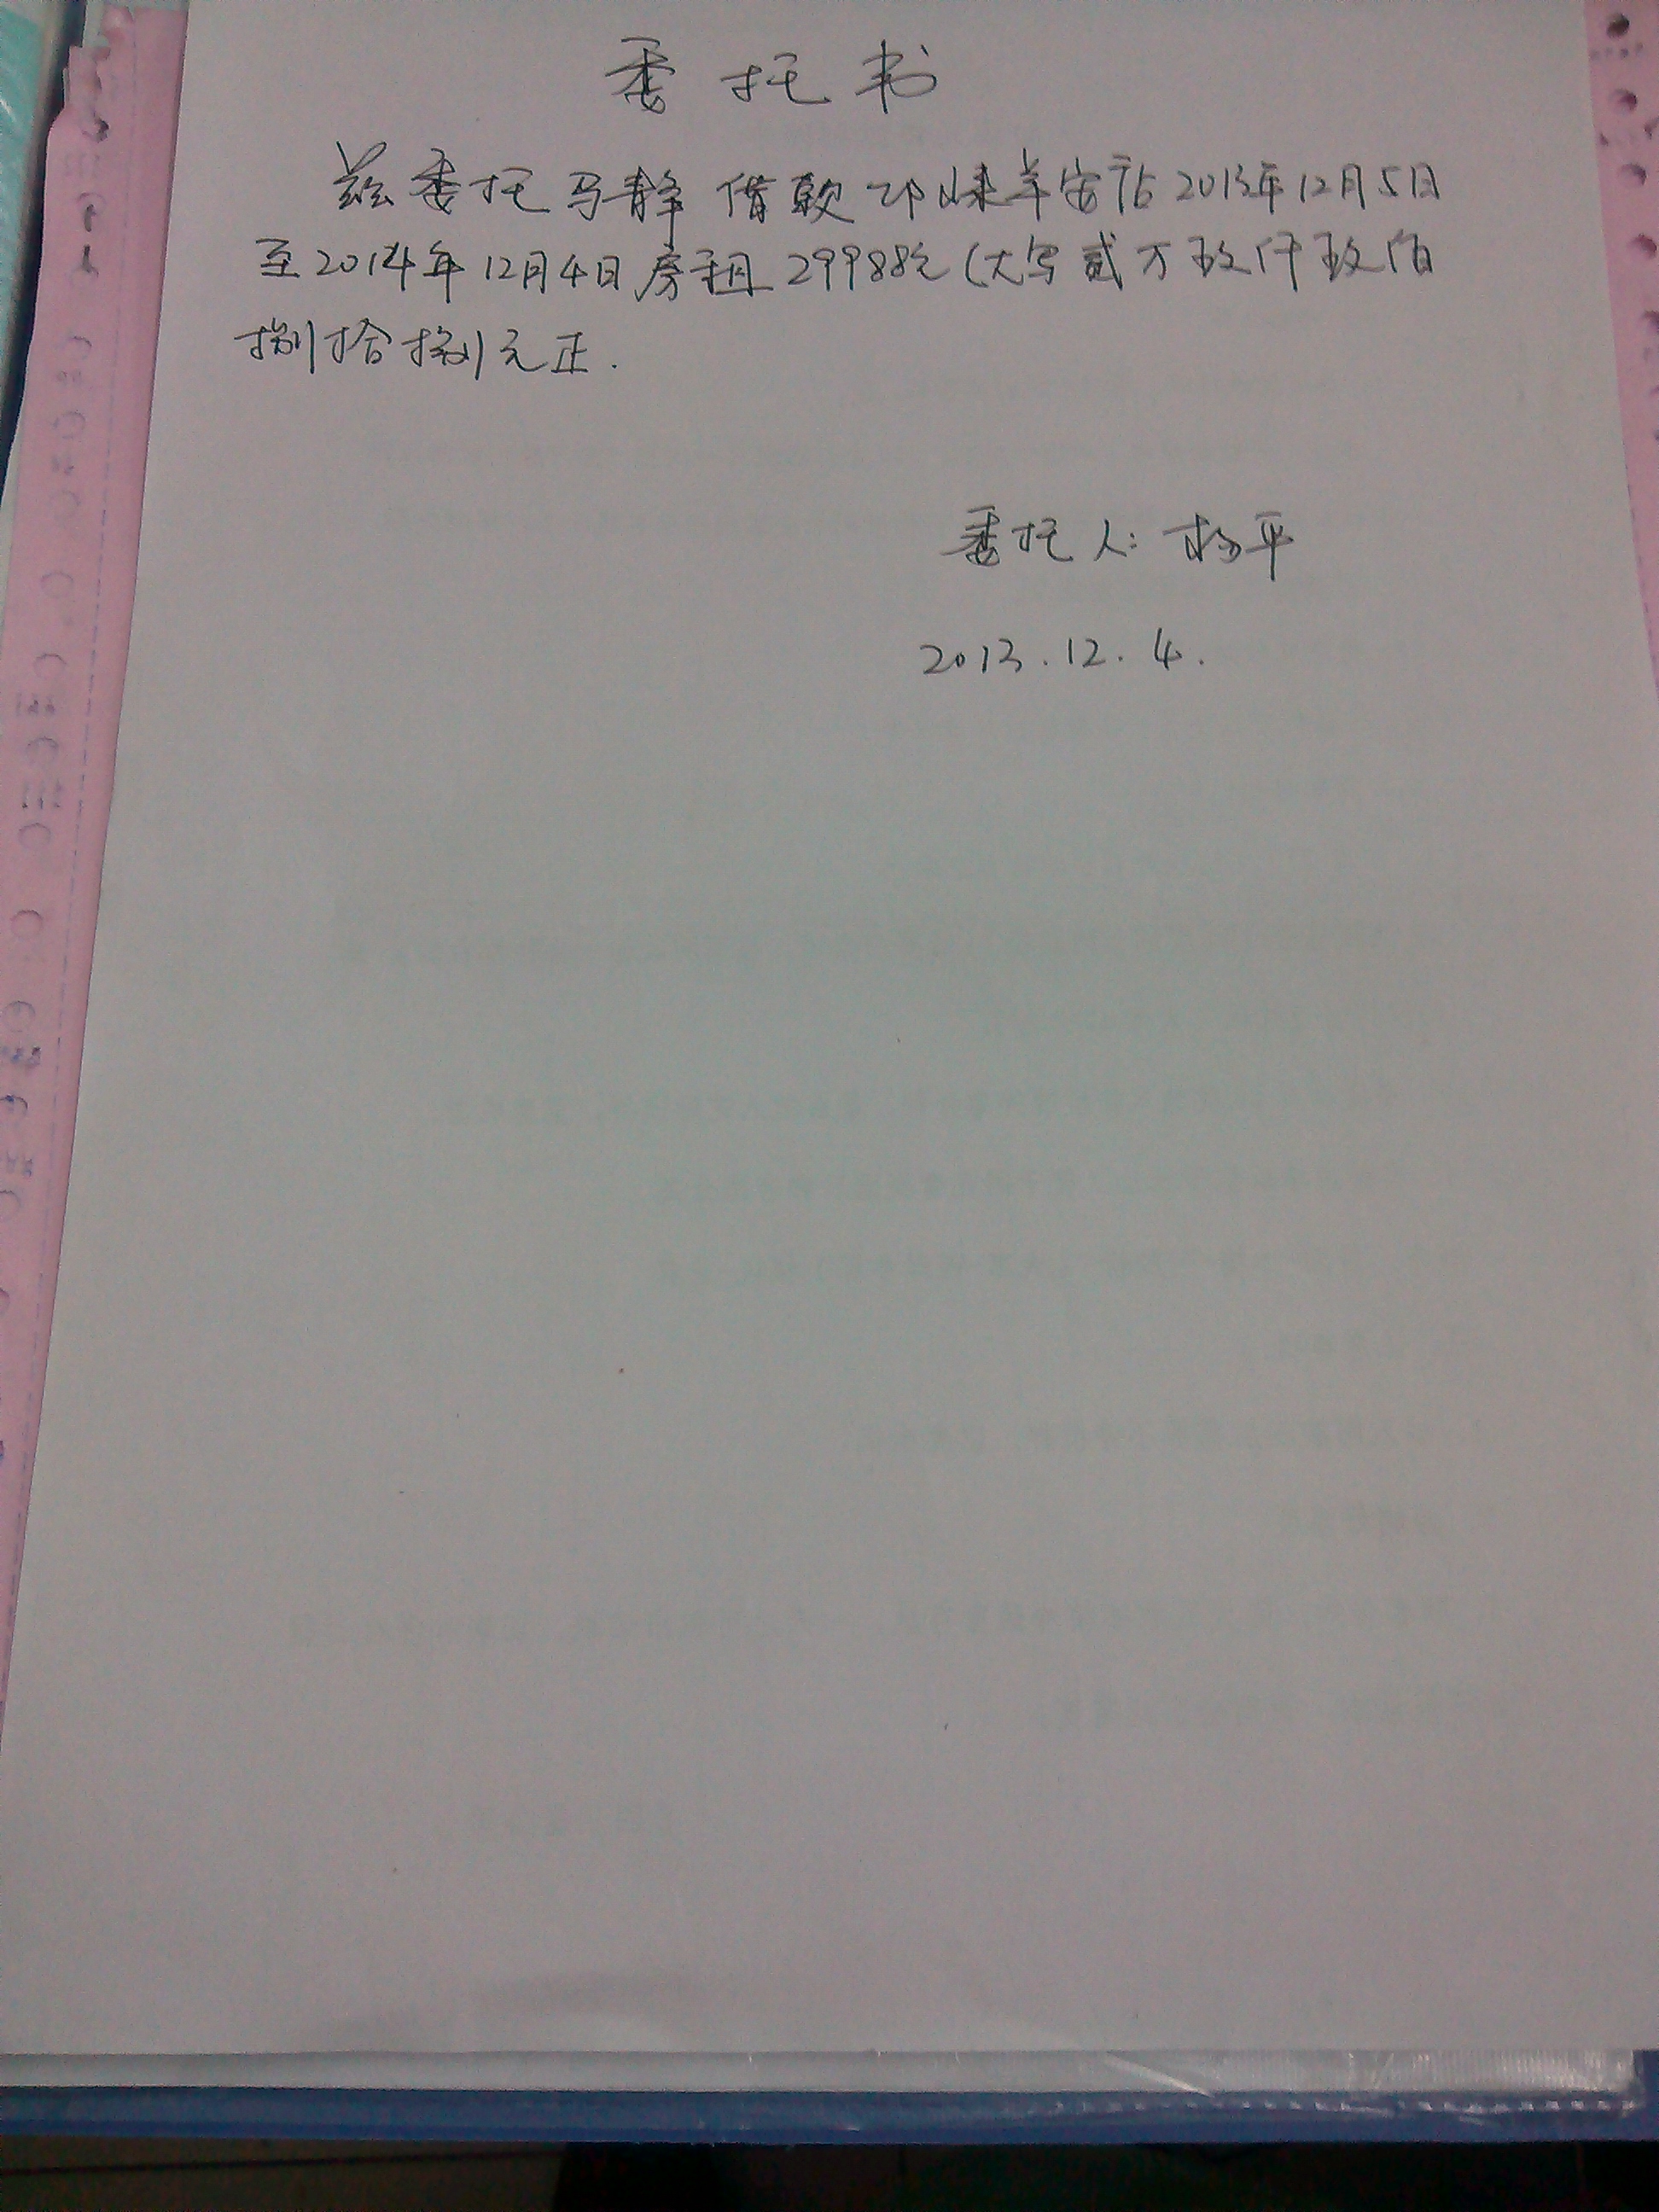 委托书
兹委托马静借款邛崃羊安站2013年12月5日
至2014年12月4日房租29988元(大写贰万玖仟玖佰
捌拾捌元正.
委托人:杨平
2013.12.4.